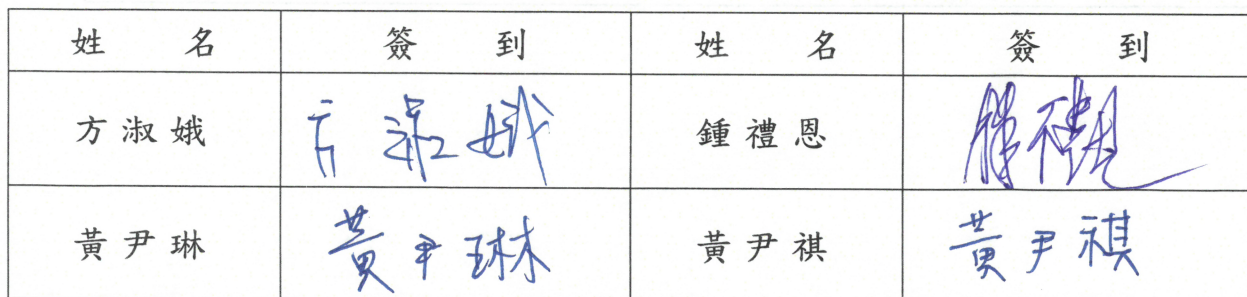 姓 名 簽 到 姓 名 簽 到
方淑娥 方淑娥 鍾禮恩 鍾禮恩
黃尹琳 黃尹琳 黃尹祺 黃尹祺